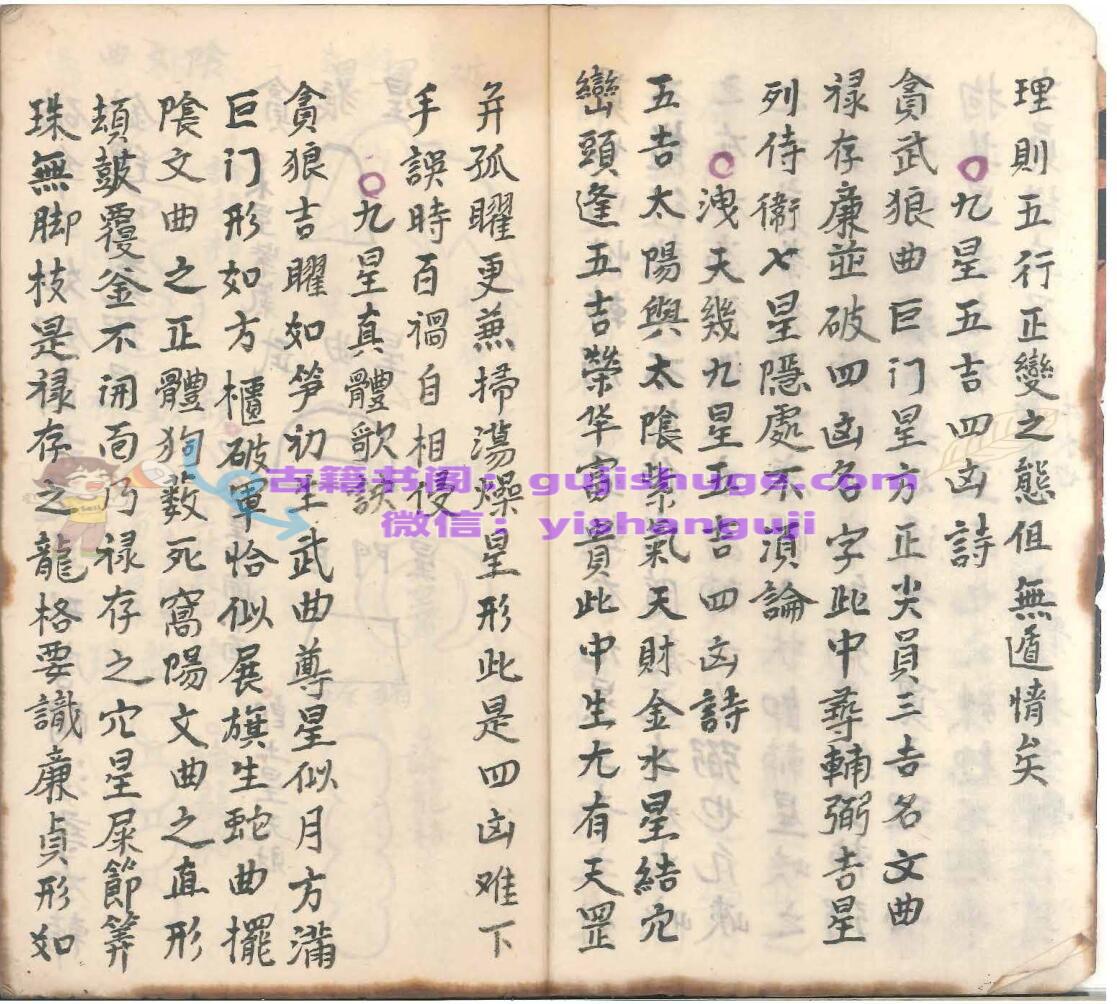 理則五行正變之態但無遁情矣
九星五吉四凶詩
貪武狼曲巨门星方正尖員三吉名文曲
禄存廉並破四凶名字此中尋輔弼吉星
列侍衛七星隱處不湏論
洩天幾九星五吉四凶詩
五吉太陽與太隂紫氣天財金水星結穴
巒頭逢五吉榮华富貴此中生尢有天罡
并孤曜更蕪掃蕩燥星形此是四凶难下
手誤時百禍自相侵
九星真體歌訣
貪狼吉曜如笋初生武曲尊星似月方滿
巨门形如方櫃破軍恰似展旗生蛇曲擺
隂文曲之正體狗薮死窩陽文曲之直形
頓皷覆釜不開面乃禄存之穴星屎節筭
珠無脚枝是禄存之龍格要識廉貞形如
古籍书阁：gujishuge.com
微信：yishanguji